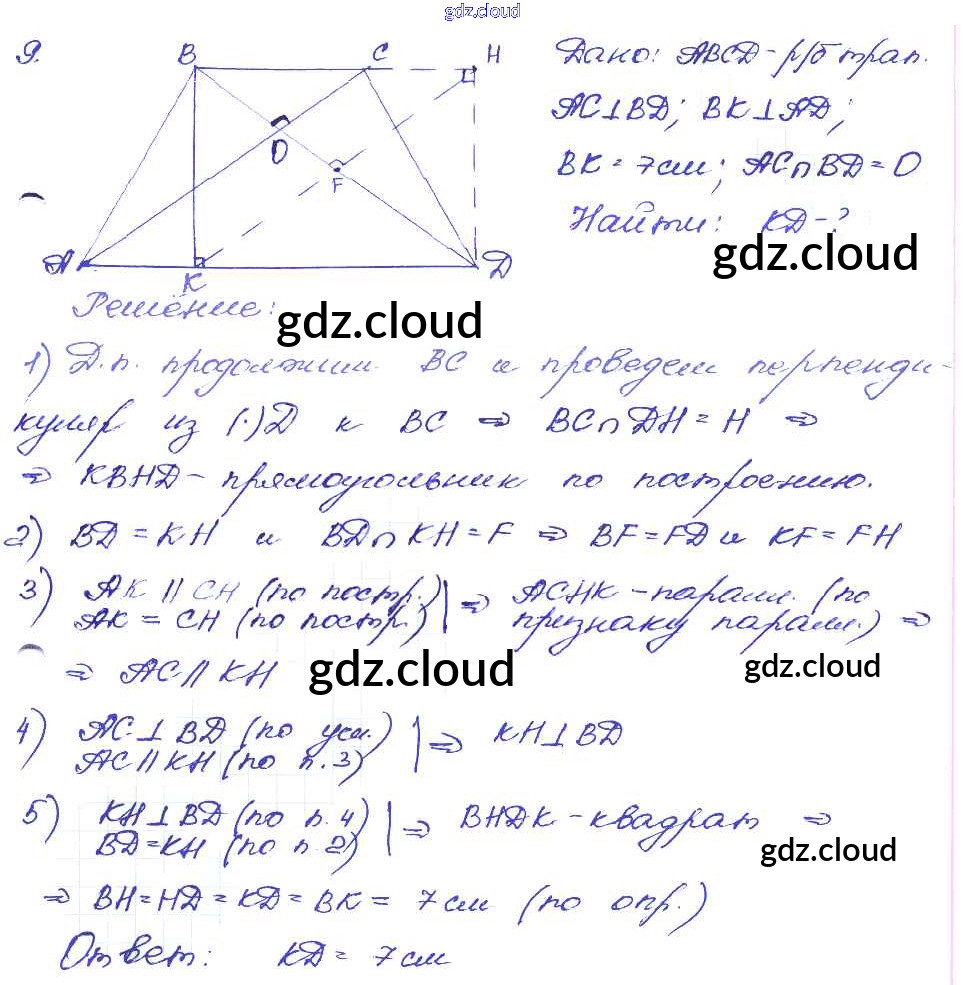 gdz.cloud
9.
B C H
O
F
A K D
Дано: ABCD - р/б трап.
AC⊥BD; BK⊥AD;
BK = 7см; AC∩BD = O
Найти: KD - ?
gdz.cloud
Решение:
gdz.cloud
1) Д.п. продолжим BC и проведем перпенди-
куляр из (·)D к BC ⇒ BC∩DH = H ⇒
⇒ KBHD - прямоугольник по построению.
2) BD = KH и BD∩KH = F ⇒ BF = FD и KF = FH
3) AK || CH (по постр.) | ⇒ ACHK - парал. (по
AK = CH (по постр.) | признаку парал.) ⇒
⇒ AC || KH
gdz.cloud
gdz.cloud
4) AC ⊥ BD (по усл.) | ⇒ KH⊥BD
AC || KH (по п. 3)
5) KH ⊥ BD (по п. 4) | ⇒ BHDK - квадрат ⇒
BD = KH (по п. 2)
gdz.cloud
⇒ BH = HD = KD = BK = 7см (по опр.)
Ответ: KD = 7см